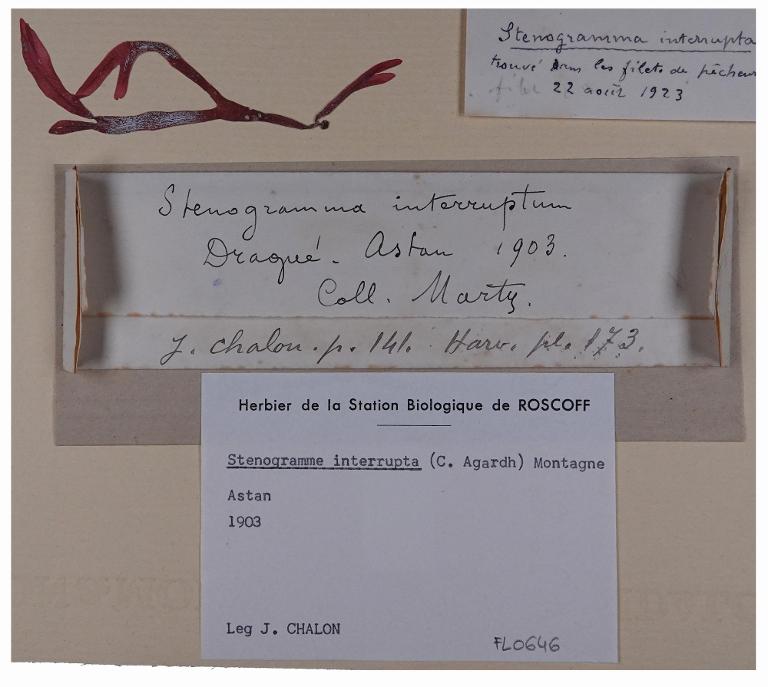 Stenogramma interrupta
trouvé dans les filets de pêcheur
22 août 1923
Stenogramma interruptum
Dragué. Astan 1903.
Coll. Marty.
J. Chalon. p. 141. Harv. pl. 173.
Herbier de la Station Biologique de ROSCOFF
Stenogramme interrupta (C. Agardh) Montagne
Astan
1903
Leg J. CHALON
FL0646